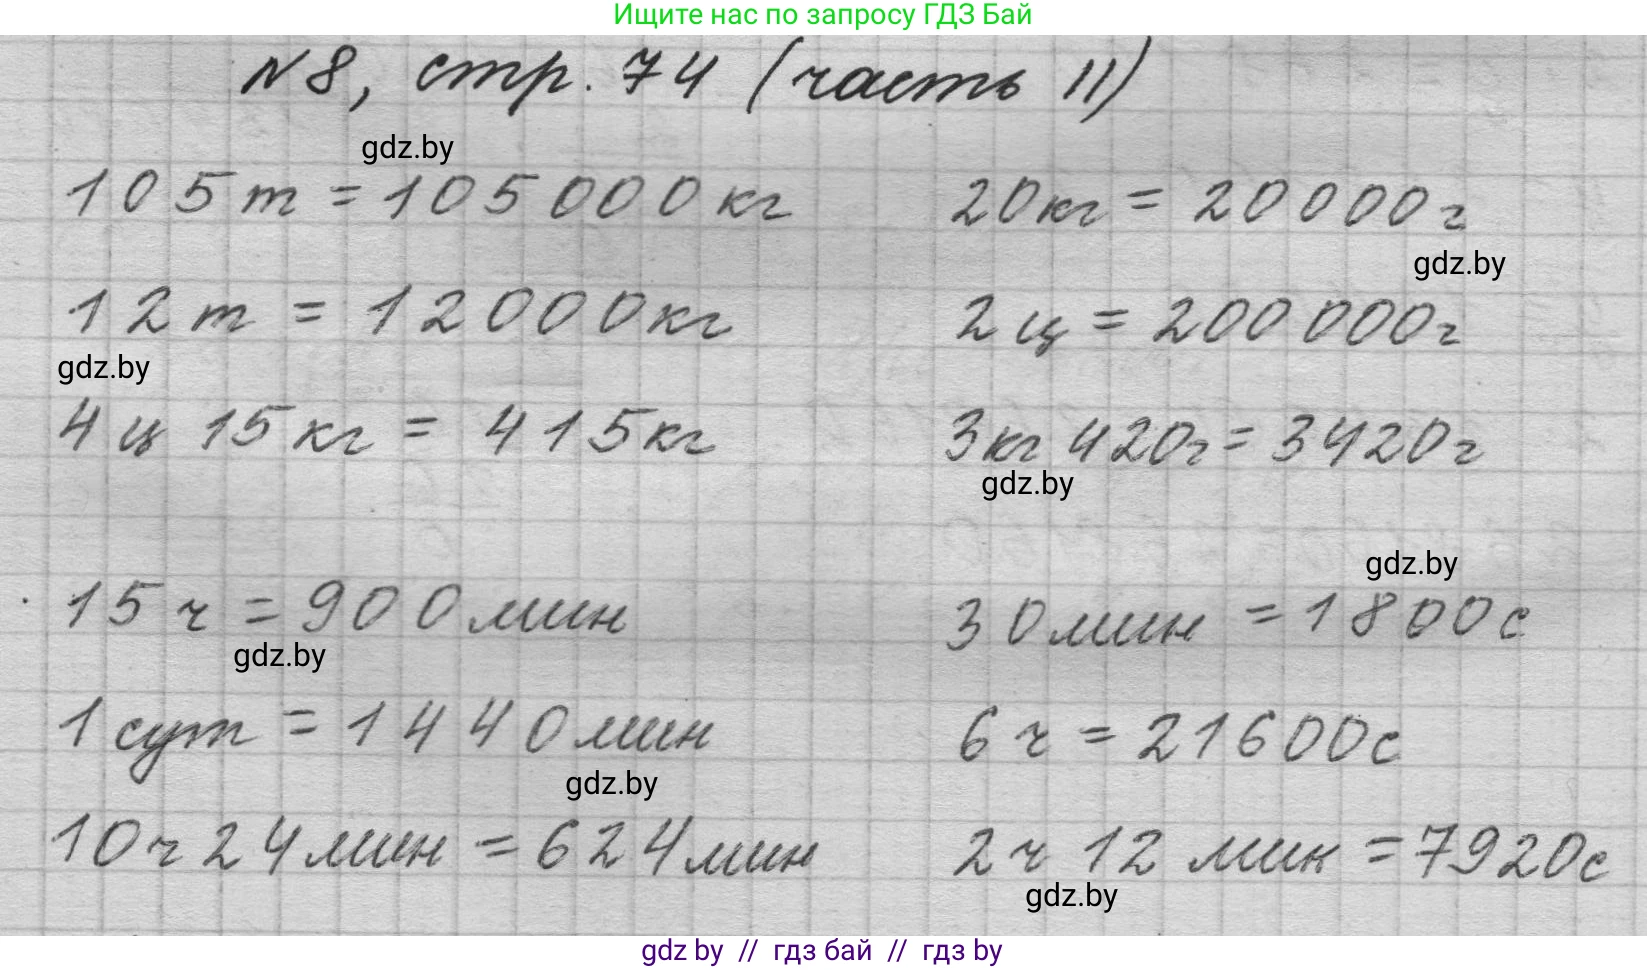 Ищите нас по запросу ГДЗ Бай
№8, стр. 74 (часть II)
gdz.by
105 т = 105000 кг 20кг = 20000г
gdz.by
12 т = 12000кг 2 ц = 200000г
gdz.by
4 ц 15 кг = 415кг 3кг 420г = 3420г
gdz.by
gdz.by
15 ч = 900 мин 30 мин = 1800 с
gdz.by
1 сут = 1440 мин 6 ч = 21600с
gdz.by
10ч 24 мин = 624 мин 2 ч 12 мин = 7920с
gdz.by
gdz by // гдз бай // гдз by